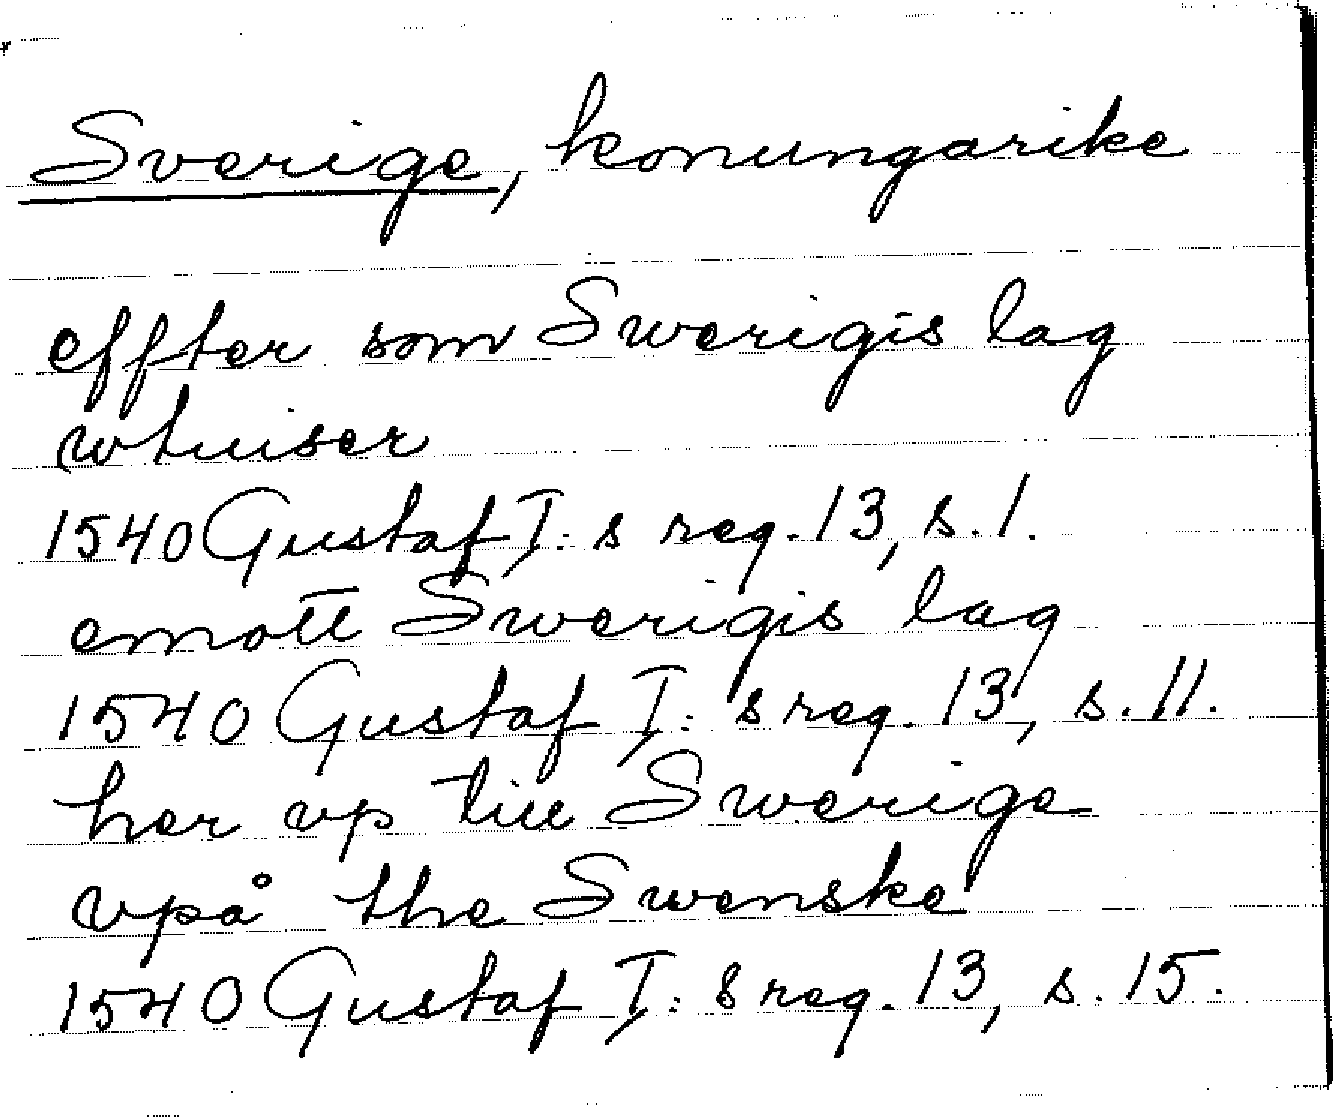 Sverige, konungarike
effter som Swerigis lag
wthuiser
1540 Gustaf I:s reg. 13, s. 1.
emott Swerigis lag
1540 Gustaf I:s reg. 13, s. 11.
her vp till Swerige
vpå the Swenske
1540 Gustaf I:s reg. 13, s. 15.